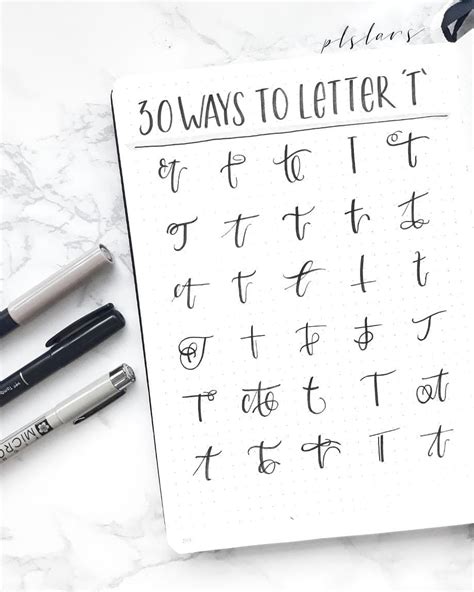 plslars
30 WAYS TO LETTER 'T'
t t t T t
T t t t t
t t t t t
T t t t T
T t t T t
t t t T t
MICRO